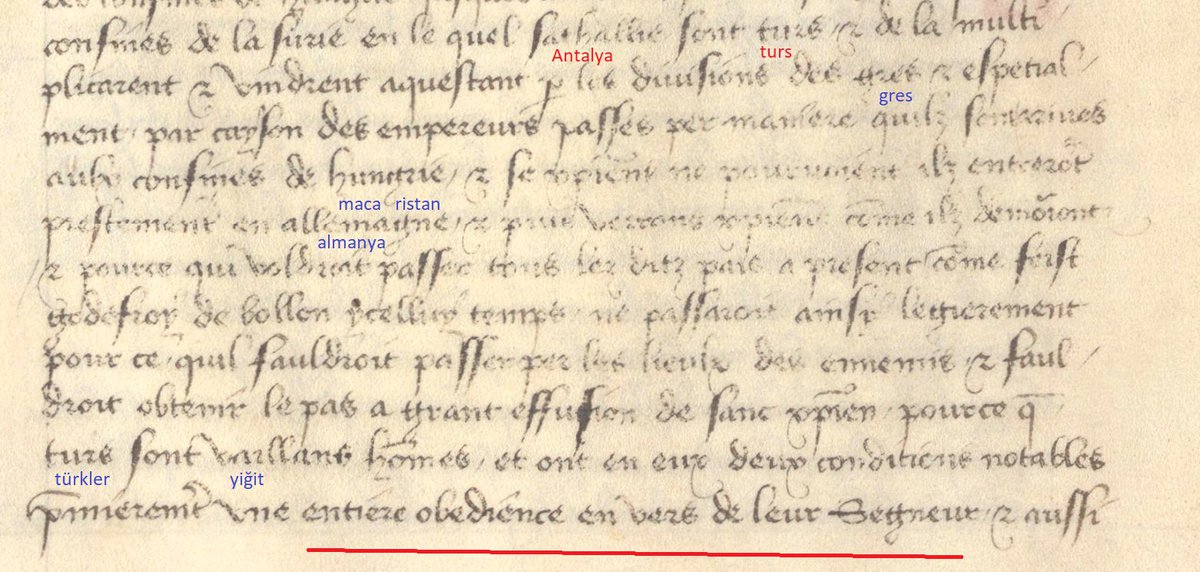 confines de la surie en le quel sathallie sont turs / & de la multi
Antalya turs
plicarent & vindrent aquestant p les divisions des gres & espetial-
gres
ment / par cayson des empereurs passes per maniere quilz sont
confines de hungrie / & se xpient ne pourvoient ilz entreröt
maca ristan
prestement en allemagne / & xpiens cöme ilz
almanya
& pource qui voldroit passer tous les ditz païs a present cöme feist
godefroy de bollen ycelluy temps / ne passaroit ainsy legierement
pour ce / quil fauldroit passer per les lieulx des ennemis & faul-
droit obtenir le pas a grant effusion de sanc xpien / pource q̄
turs sont vaillans hömes / et ont en eux deux conditions notables
türkler yiğit
p̄mieremt̄ vne entiere obedience en vers de leur Segneur / & aussi